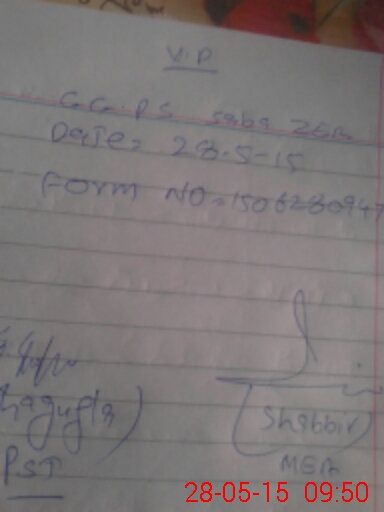 V.P
G.G.P.S Saba
Date= 28-5-15
Form NO. 150628094
Shabbir
PST
MEA
28-05-15 09:50